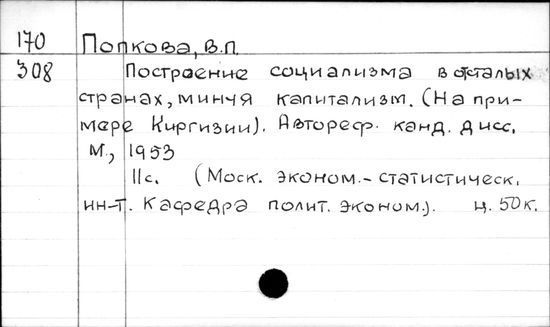 170 Попкова, В.П.
308 Построение социализма в отсталых
странах, минуя капитализм. (На при-
мере Киргизии). Автореф. канд. дисс.
М., 1953
11с. (Моск. эконом.-статистическ.
ин-т. Кафедра полит. эконом.). ц. 50к.